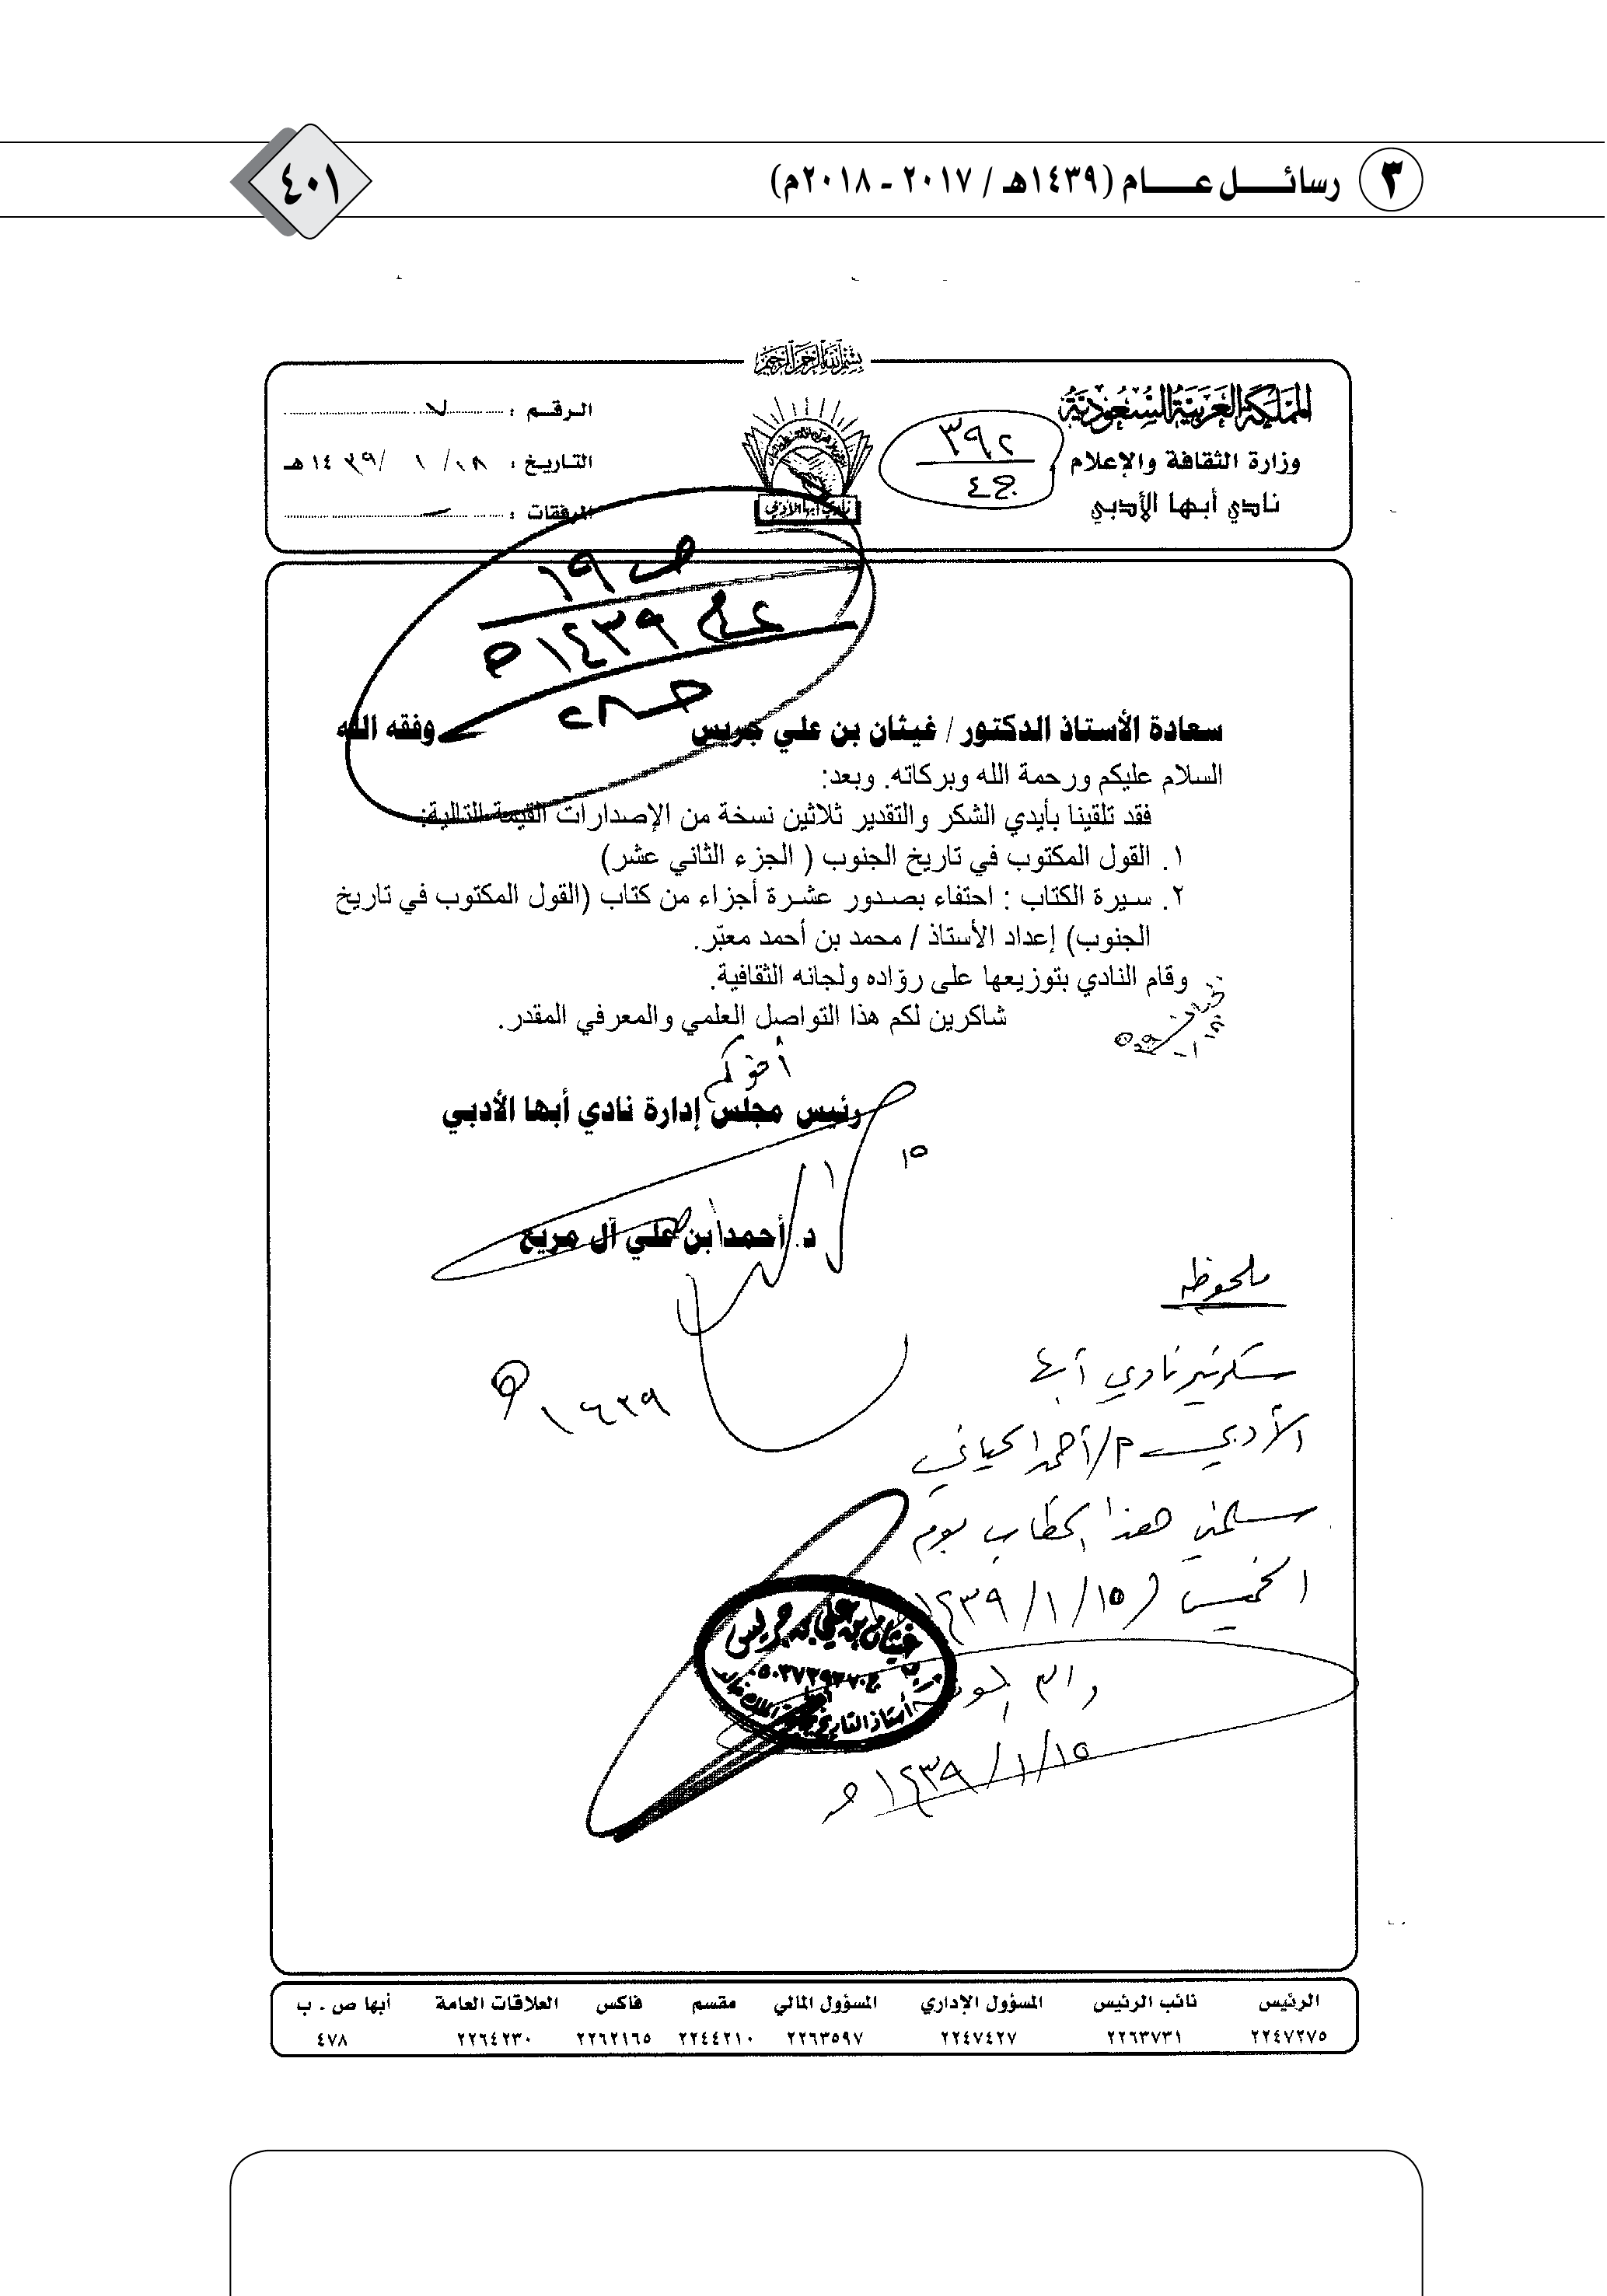 ٣ رسائل عام (١٤٣٩هـ / ٢٠١٧ - ٢٠١٨م)
٤٠١
بسم الله الرحمن الرحيم
المملكة العربية السعودية
وزارة الثقافة والإعلام
نادي أبها الأدبي
٣٩٢
٤ج
نادي أبها الأدبي
الرقم : ٧
التاريخ : ٠٨ / ١ / ١٤٣٩هـ
المرفقات :
ص ١٩
١٤٣٩هـ
سعادة الأستاذ الدكتور / غيثان بن علي جريس وفقه الله
السلام عليكم ورحمة الله وبركاته. وبعد:
فقد تلقينا بأيدي الشكر والتقدير ثلاثين نسخة من الإصدارات القيمة التالية:
١. القول المكتوب في تاريخ الجنوب ( الجزء الثاني عشر)
٢. سيرة الكتاب : احتفاء بصدور عشرة أجزاء من كتاب (القول المكتوب في تاريخ
الجنوب) إعداد الأستاذ / محمد بن أحمد معبّر.
وقام النادي بتوزيعها على روّاده ولجانه الثقافية.
شاكرين لكم هذا التواصل العلمي والمعرفي المقدر.
أخوكم
رئيس مجلس إدارة نادي أبها الأدبي
د. أحمد بن علي آل مريع
١٤٣٩هـ
ملحوظة
سكرتير نادي أبها
الأدبي م/أحمد الحياني
سلمني هذا الخطاب يوم
الخميس ١٤٣٩/١/١٥
١٤٣٩/١/١٥هـ
غيثان بن علي بن جريس
أستاذ التاريخ
الرئيس نائب الرئيس المسؤول الإداري المسؤول المالي مقسم فاكس العلاقات العامة أبها ص . ب
٢٢٤٧٢٧٥ ٢٢٦٣٧٣١ ٢٢٤٧٤٢٧ ٢٢٦٣٥٩٧ ٢٢٤٤٢١٠ ٢٢٦٢١٦٥ ٢٢٦٤٢٣٠ ٤٧٨